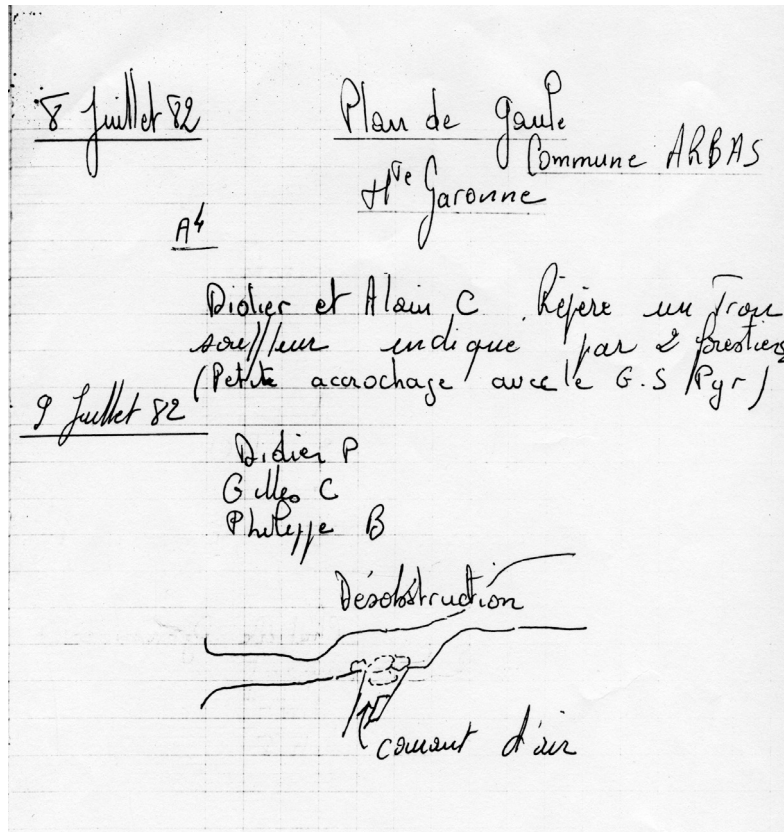 8 Juillet 82
Plan de Gaule
Commune ARBAS
Hte Garonne
A4
Didier et Alain C. Répère un Trou
souffleur indique par 2 forestiers
(Petite accrochage avec le G.S Pyr)
9 Juillet 82
Didier P
Gilles C
Philippe B
Désobstruction
courant d'air